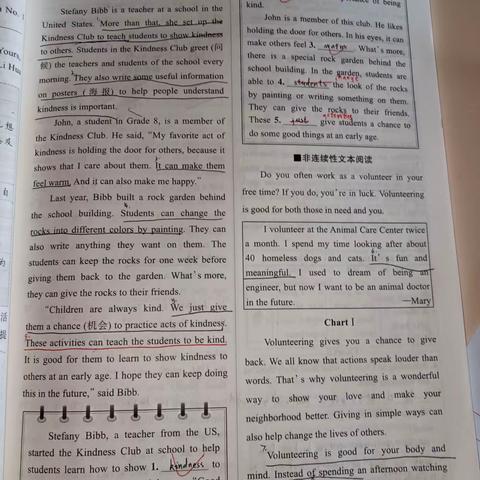 Stefany Bibb is a teacher at a school in the
United States. More than that, she set up the
Kindness Club to teach students to show kindness
to others. Students in the Kindness Club greet (问
候) the teachers and students of the school every
morning. They also write some useful information
on posters (海报) to help people understand
kindness is important.
John, a student in Grade 8, is a member of
the Kindness Club. He said, "My favorite act of
kindness is holding the door for others, because it
shows that I care about them. It can make them
feel warm. And it can also make me happy."
Last year, Bibb built a rock garden behind
the school building. Students can change the
rocks into different colors by painting. They can
also write anything they want on them. The
students can keep the rocks for one week before
giving them back to the garden. What's more,
they can give the rocks to their friends.
"Children are always kind. We just give
them a chance (机会) to practice acts of kindness.
These activities can teach the students to be kind.
It is good for them to learn to show kindness to
others at an early age. I hope they can keep doing
this in the future," said Bibb.
Stefany Bibb, a teacher from the US,
started the Kindness Club at school to help
students learn how to show 1. kindness to
kind.
John is a member of this club. He likes
holding the door for others. In his eyes, it can
make others feel 3. What's more,
there is a special rock garden behind the
school building. In the garden, students are
able to 4. students the look of the rocks
by painting or writing something on them.
They can give the rocks to their friends.
These 5. just give students a chance to
do some good things at an early age.
■非连续性文本阅读
Do you often work as a volunteer in your
free time? If you do, you're in luck. Volunteering
is good for both those in need and you.
I volunteer at the Animal Care Center twice
a month. I spend my time looking after about
40 homeless dogs and cats. It's fun and
meaningful. I used to dream of being an
engineer, but now I want to be an animal doctor
in the future. —Mary
Chart 1
Volunteering gives you a chance to give
back. We all know that actions speak louder than
words. That's why volunteering is a wonderful
way to show your love and make your
neighborhood better. Giving in simple ways can
also help change the lives of others.
Volunteering is good for your body and
mind. Instead of spending an afternoon watching